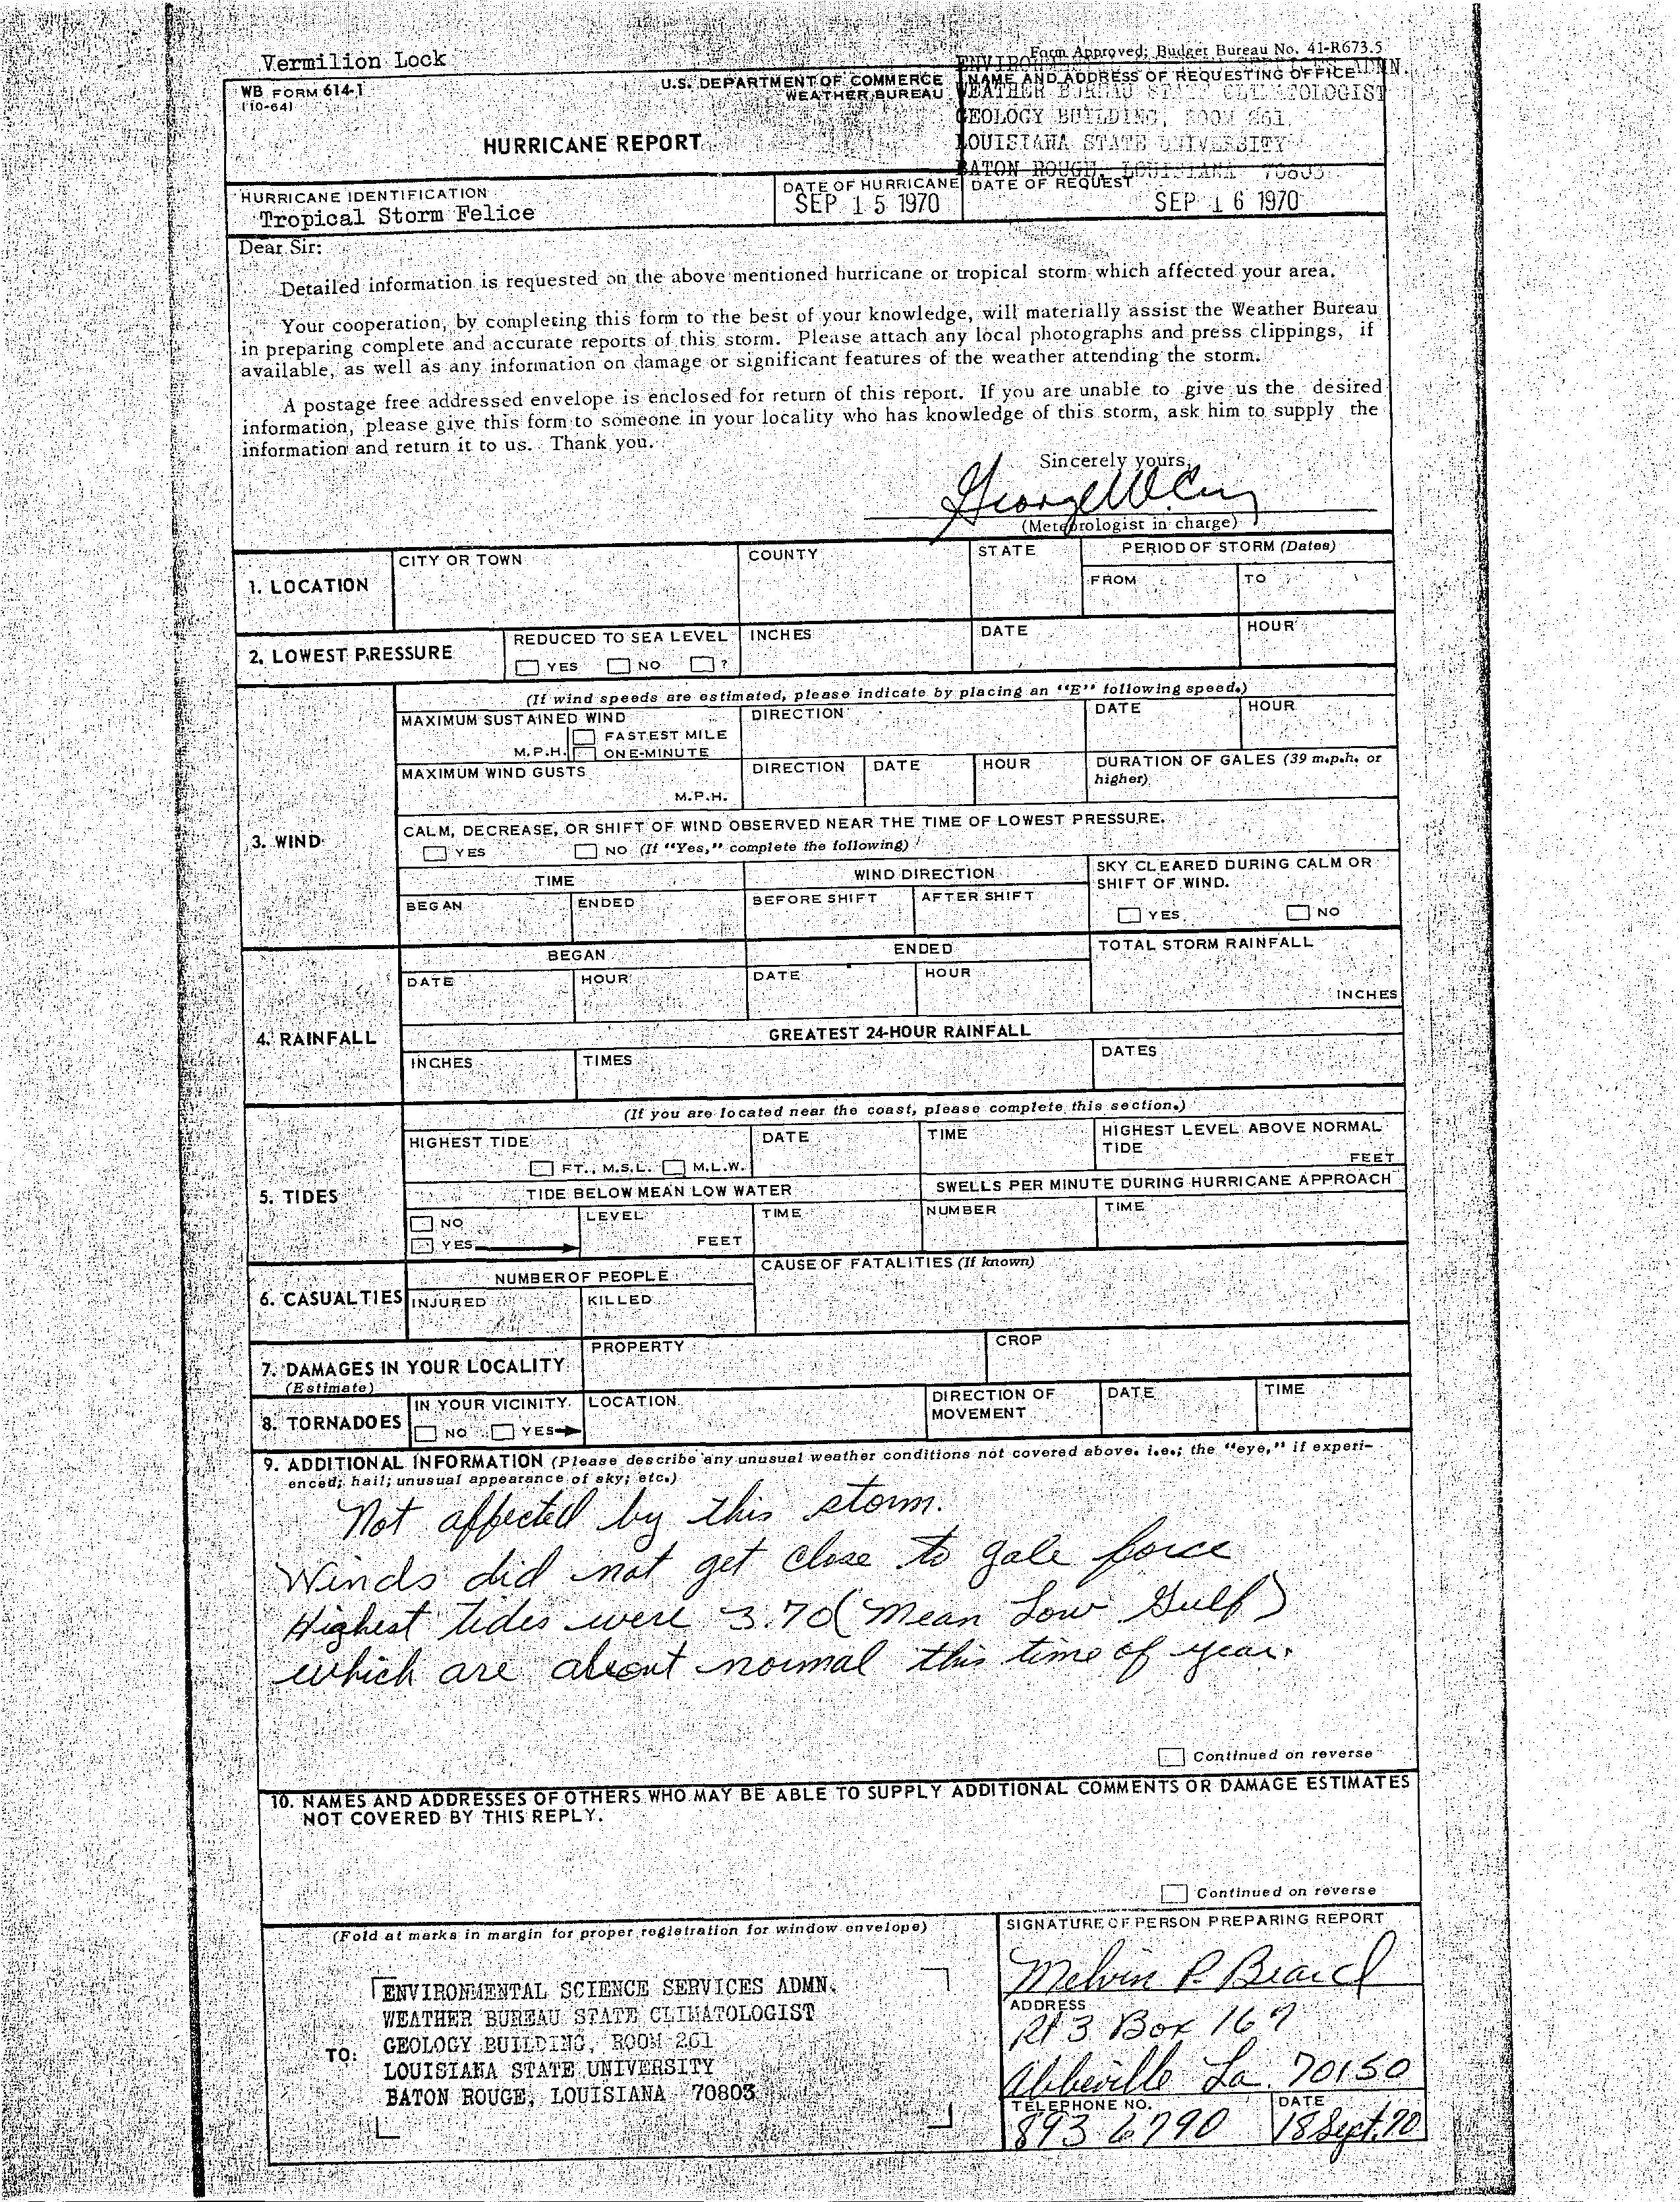 Vermilion Lock
Form Approved; Budget Bureau No. 41-R673.5
WB FORM 614-1
(10-64)
U.S. DEPARTMENT OF COMMERCE
WEATHER BUREAU
HURRICANE REPORT
NAME AND ADDRESS OF REQUESTING OFFICE
WEATHER BUREAU STATE CLIMATOLOGIST
GEOLOGY BUILDING, ROOM 261
LOUISIANA STATE UNIVERSITY
BATON ROUGE, LOUISIANA 70803
HURRICANE IDENTIFICATION
Tropical Storm Felice
DATE OF HURRICANE
SEP 15 1970
DATE OF REQUEST
SEP 16 1970
Dear Sir:
Detailed information is requested on the above mentioned hurricane or tropical storm which affected your area.
Your cooperation, by completing this form to the best of your knowledge, will materially assist the Weather Bureau
in preparing complete and accurate reports of this storm. Please attach any local photographs and press clippings, if
available, as well as any information on damage or significant features of the weather attending the storm.
A postage free addressed envelope is enclosed for return of this report. If you are unable to give us the desired
information, please give this form to someone in your locality who has knowledge of this storm, ask him to supply the
information and return it to us. Thank you.
Sincerely yours,
(Meteorologist in charge)
1. LOCATION
CITY OR TOWN
COUNTY
STATE
PERIOD OF STORM (Dates)
FROM
TO
2. LOWEST PRESSURE
REDUCED TO SEA LEVEL
YES NO ?
INCHES
DATE
HOUR
3. WIND
(If wind speeds are estimated, please indicate by placing an "E" following speed.)
MAXIMUM SUSTAINED WIND
FASTEST MILE
M.P.H. ONE-MINUTE
DIRECTION
DATE
HOUR
MAXIMUM WIND GUSTS
M.P.H.
DIRECTION
DATE
HOUR
DURATION OF GALES (39 m.p.h. or
higher)
CALM, DECREASE, OR SHIFT OF WIND OBSERVED NEAR THE TIME OF LOWEST PRESSURE.
YES NO (If "Yes," complete the following)
TIME
BEGAN
ENDED
WIND DIRECTION
BEFORE SHIFT
AFTER SHIFT
SKY CLEARED DURING CALM OR
SHIFT OF WIND.
YES NO
4. RAINFALL
BEGAN
DATE
HOUR
ENDED
DATE
HOUR
TOTAL STORM RAINFALL
INCHES
GREATEST 24-HOUR RAINFALL
INCHES
TIMES
DATES
5. TIDES
(If you are located near the coast, please complete this section.)
HIGHEST TIDE
FT., M.S.L. M.L.W.
DATE
TIME
HIGHEST LEVEL ABOVE NORMAL
TIDE
FEET
TIDE BELOW MEAN LOW WATER
NO
YES
LEVEL
FEET
TIME
SWELLS PER MINUTE DURING HURRICANE APPROACH
NUMBER
TIME
6. CASUALTIES
NUMBER OF PEOPLE
INJURED
KILLED
CAUSE OF FATALITIES (If known)
7. DAMAGES IN YOUR LOCALITY
(Estimate)
PROPERTY
CROP
8. TORNADOES
IN YOUR VICINITY.
NO YES
LOCATION
DIRECTION OF
MOVEMENT
DATE
TIME
9. ADDITIONAL INFORMATION (Please describe any unusual weather conditions not covered above. i.e.; the "eye," if experi-
enced; hail; unusual appearance of sky; etc.)
Not affected by this storm.
Winds did not get close to gale force
Highest tides were 3.70 (Mean Low Gulf)
which are about normal this time of year.
Continued on reverse
10. NAMES AND ADDRESSES OF OTHERS WHO MAY BE ABLE TO SUPPLY ADDITIONAL COMMENTS OR DAMAGE ESTIMATES
NOT COVERED BY THIS REPLY.
Continued on reverse
(Fold at marks in margin for proper registration for window envelope)
TO:
ENVIRONMENTAL SCIENCE SERVICES ADMN.
WEATHER BUREAU STATE CLIMATOLOGIST
GEOLOGY BUILDING, ROOM 261
LOUISIANA STATE UNIVERSITY
BATON ROUGE, LOUISIANA 70803
SIGNATURE OF PERSON PREPARING REPORT
Melvin P. Beard
ADDRESS
Rt 3 Box 167
Abbeville La. 70150
TELEPHONE NO.
893 6790
DATE
18 Sept. 70